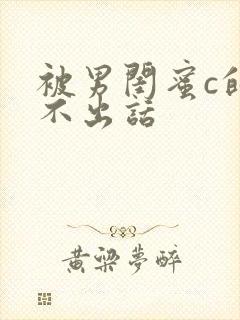 被男閨蜜c的
不出話
黄梁夢醉